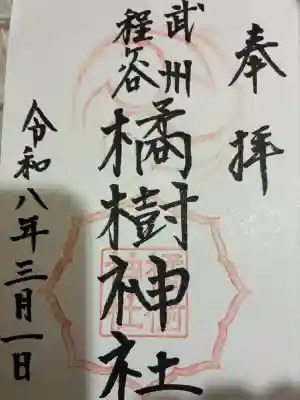 奉拝
武州
程ヶ谷
橘樹神社
橘樹神社
令和八年三月一日